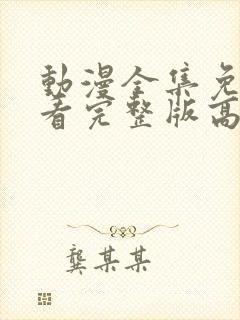 動漫全集免
看完整版高
龔某某